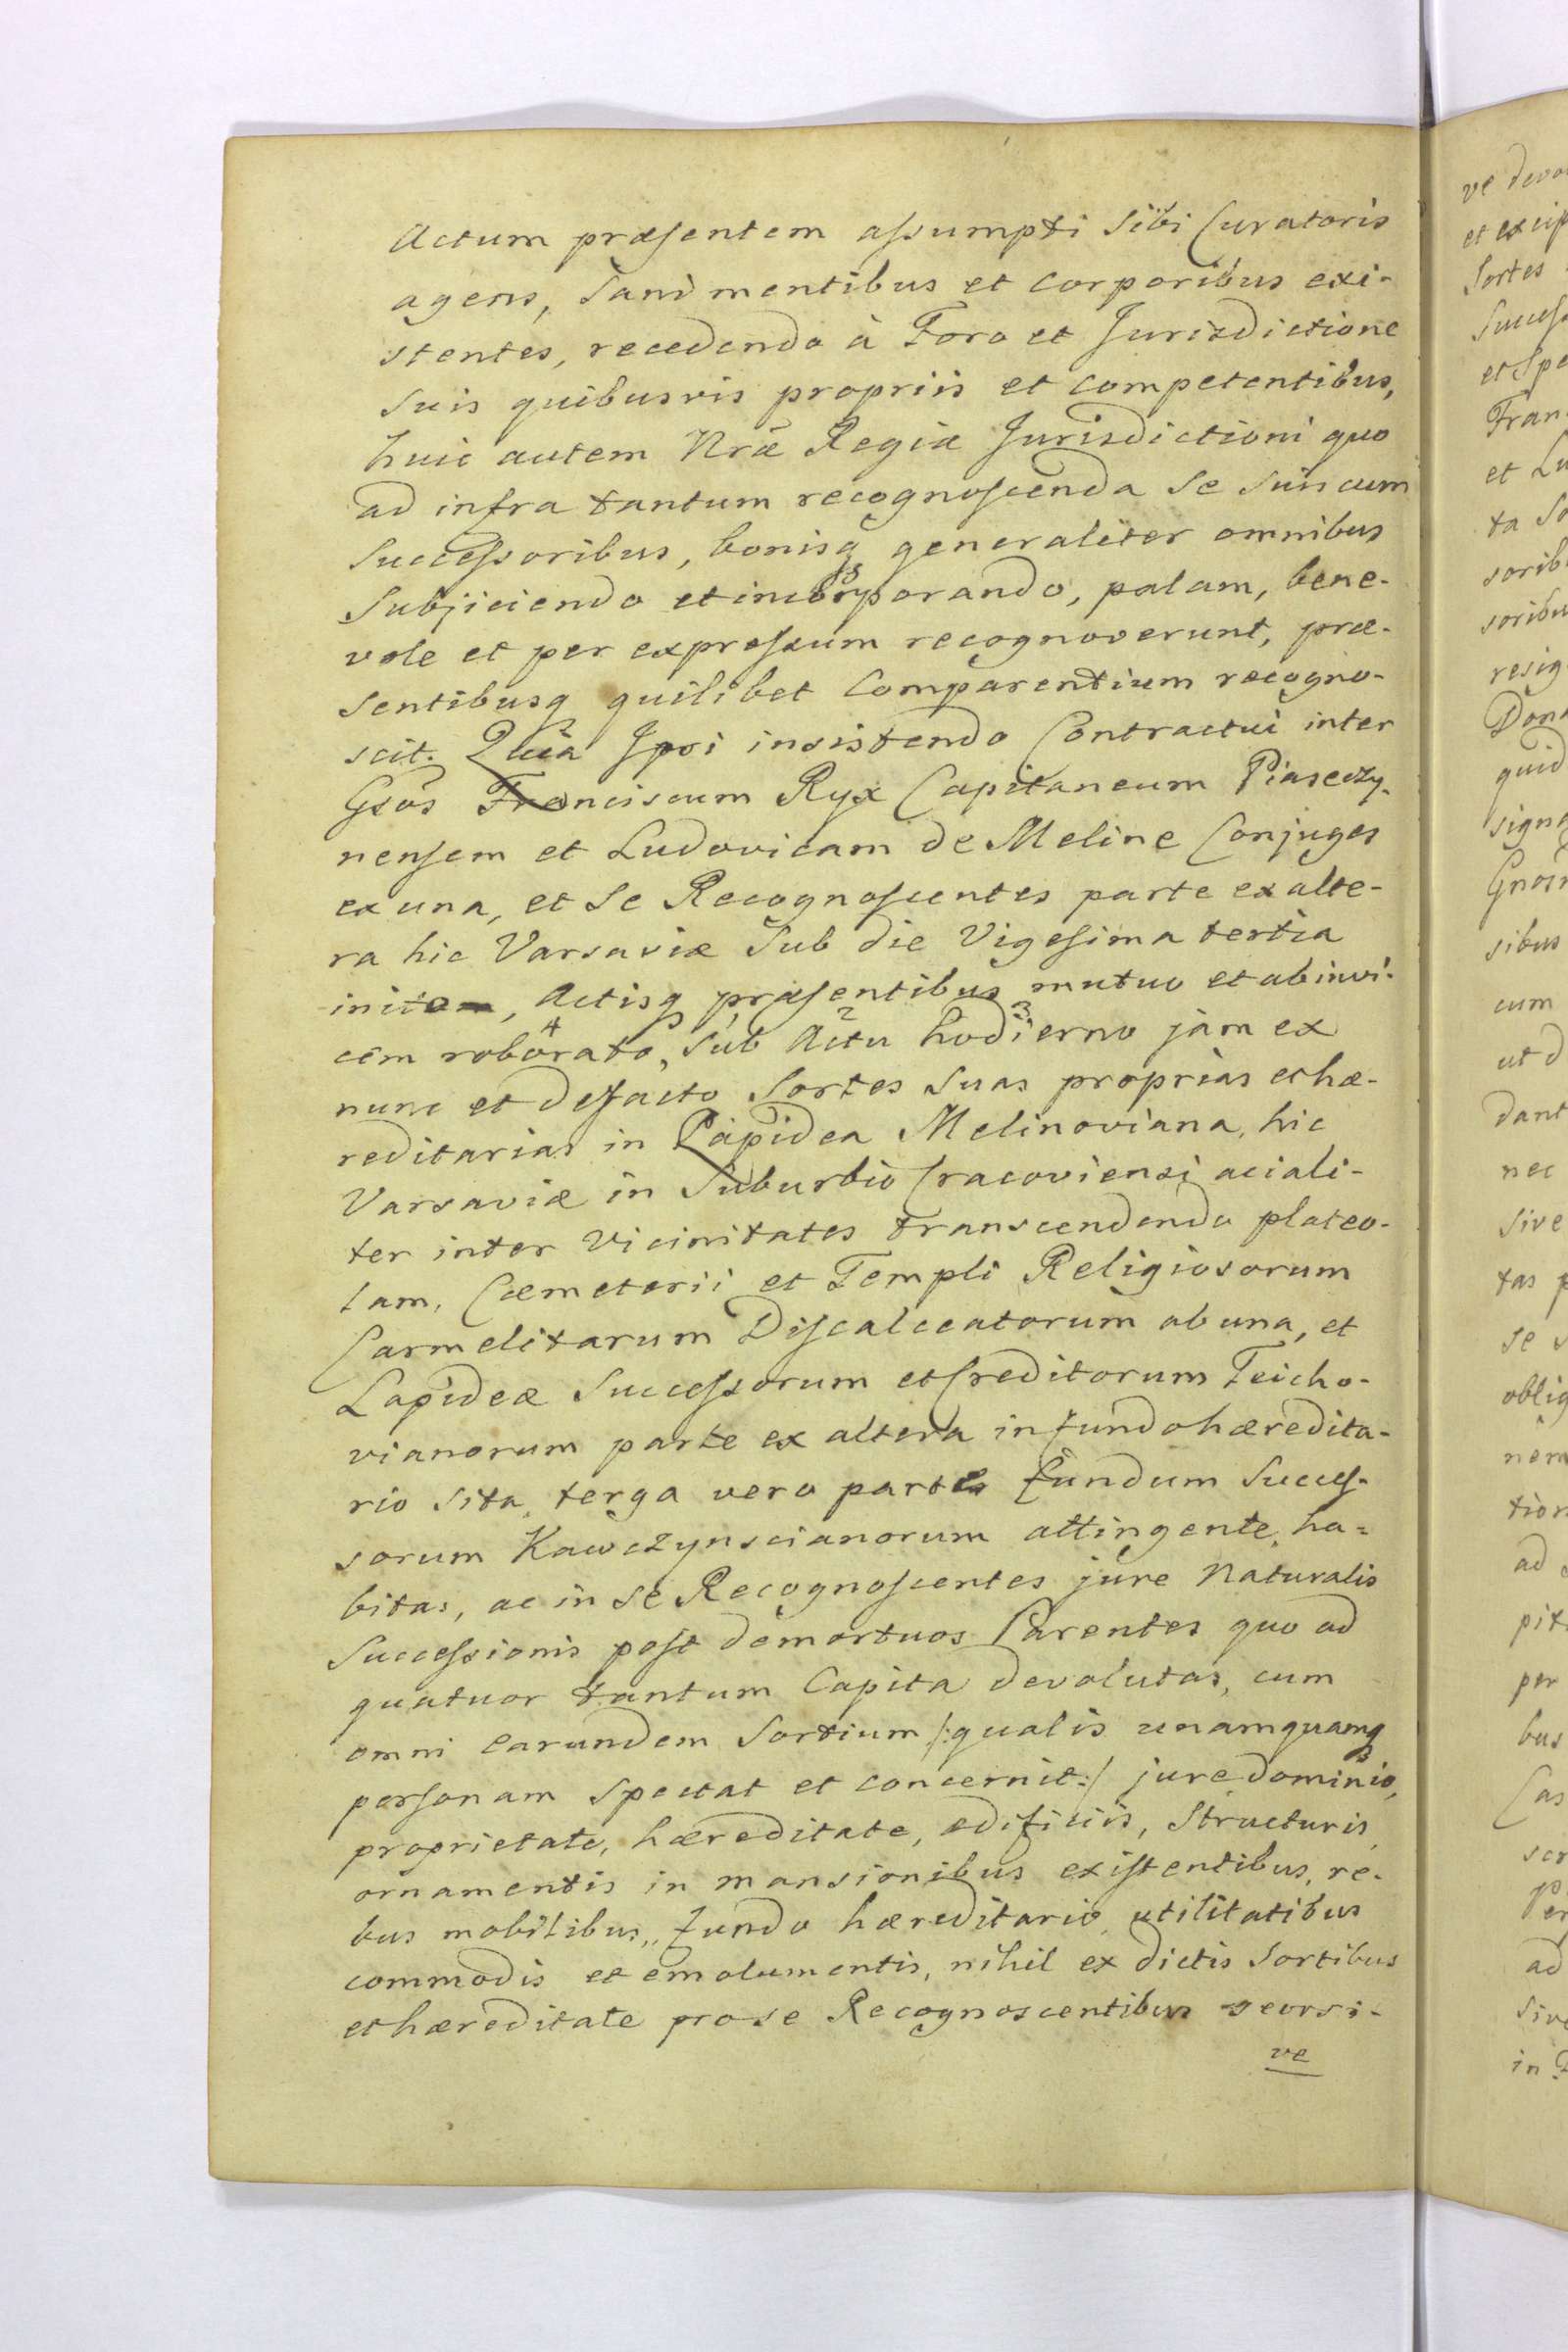 Actum præsentem assumpti sibi Curatoris
agens, sani mentibus et corporibus exi-
stentes, recedendo à Foro et Jurisdictione
suis quibusvis propriis et competentibus,
huic autem Nræ Regiæ Jurisdictioni quo
ad infra tantum recognoscenda se suis cum
Successoribus, bonisq generaliter omnibus
Subjiciendo et incorporando, palam, bene-
vole et per expressum recognoverunt, præ-
sentibusq quilibet Comparentium recogno-
scit. Quia Ipsi insistendo Contractui inter
Gsos Franciscum Ryx Capitaneum Piaseczy-
nensem et Ludovicam de Meline Conjuges
ex una, et se Recognoscentes parte ex alte-
ra hic Varsaviæ Sub die Vigesima tertia
inito, Actisq præsentibus mutuo et ab invi-
cem roborato, sub Actu hodierno jam ex
nunc et de facto Sortes suas proprias et hæ-
reditarias in Lapidea Melinoviana, hic
Varsaviæ in Suburbio Cracoviensi aciali-
ter inter Vicinitates transcendendo plateo-
lam, Cæmeterii et Templi Religiosorum
Carmelitarum Discalceatorum ab una, et
Lapideæ Successorum et Creditorum Teicho-
vianorum parte ex altera in fundo hæredita-
rio sita, terga vero partes fundum Succes-
sorum Kawczynscianorum attingente, ha=
bitas, ac in se Recognoscentes jure Naturalis
Successionis post demortuos Parentes quo ad
quatuor tantum Capita devolutas, cum
omni earundem Sortium /: qualis unamquamq
personam spectat et concernit :/ jure dominio,
proprietate, hæreditate, ædificiis, Structuris,
ornamentis in mansionibus existentibus, re-
bus mobilibus, fundo hæreditario, utilitatibus
commodis et emolumentis, nihil ex dictis Sortibus
et hæreditate pro se Recognoscentibus seorsi-
ve
et excip
Sortes
et Spe
Fran
et Lu
ta So
sorib
soribu
resig
Dona
quid
signa
sibus
cum
ut d
dant
nec
sive
tas p
se
oblig
nem
tion
ad
pit
per
bus
Cas
ad
in